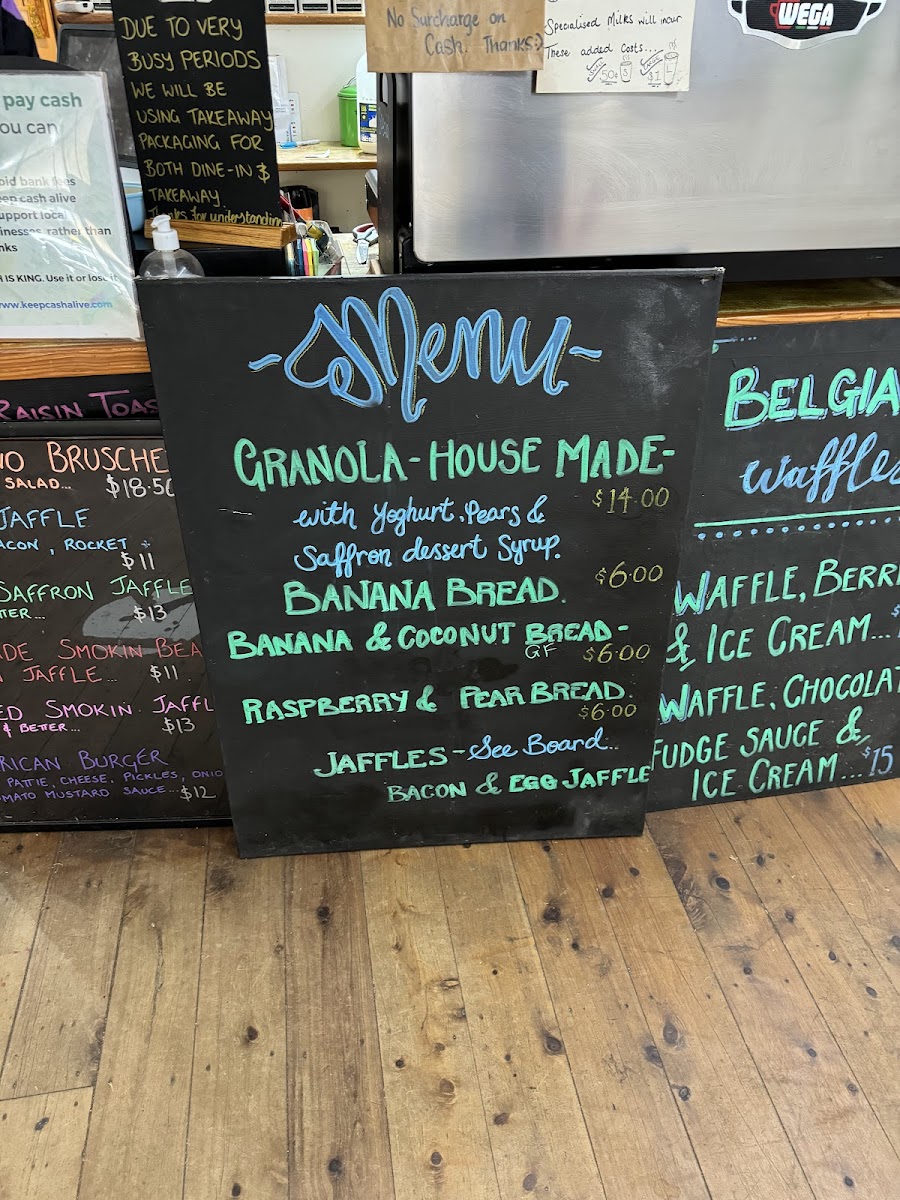 DUE TO VERY
BUSY PERIODS
WE WILL BE
USING TAKEAWAY
PACKAGING FOR
BOTH DINE-IN &
TAKEAWAY
Thanks for understanding
No Surcharge on
Cash. Thanks:)
Specialised Milks will incur
These added costs....
50¢ S $1 L
WEGA
pay cash
you can
bank fees
cash alive
support local
rather than
IS KING. Use it or lose it
www.keepcashalive.com
RAISIN TOAS
BRUSCHE
SALAD... $18.50
JAFFLE
ACON, ROCKET +
$11
SAFFRON JAFFLE
TER... $13
DE SMOKIN BEA
JAFFLE... $11
ED SMOKIN JAFFL
& BETTER... $13
RICAN BURGER
PATTIE, CHEESE, PICKLES, ONIO
MATO MUSTARD SAUCE... $12
~Menu~
GRANOLA-HOUSE MADE-
with Yoghurt, Pears & $14.00
Saffron dessert Syrup.
BANANA BREAD. $6.00
BANANA & COCONUT BREAD-
GF $6.00
RASPBERRY & PEAR BREAD.
$6.00
JAFFLES - See Board..
BACON & EGG JAFFLE
BELGIA
Waffles
WAFFLE, BERRI
& ICE CREAM... $1
WAFFLE, CHOCOLAT
FUDGE SAUCE &
ICE CREAM... $15